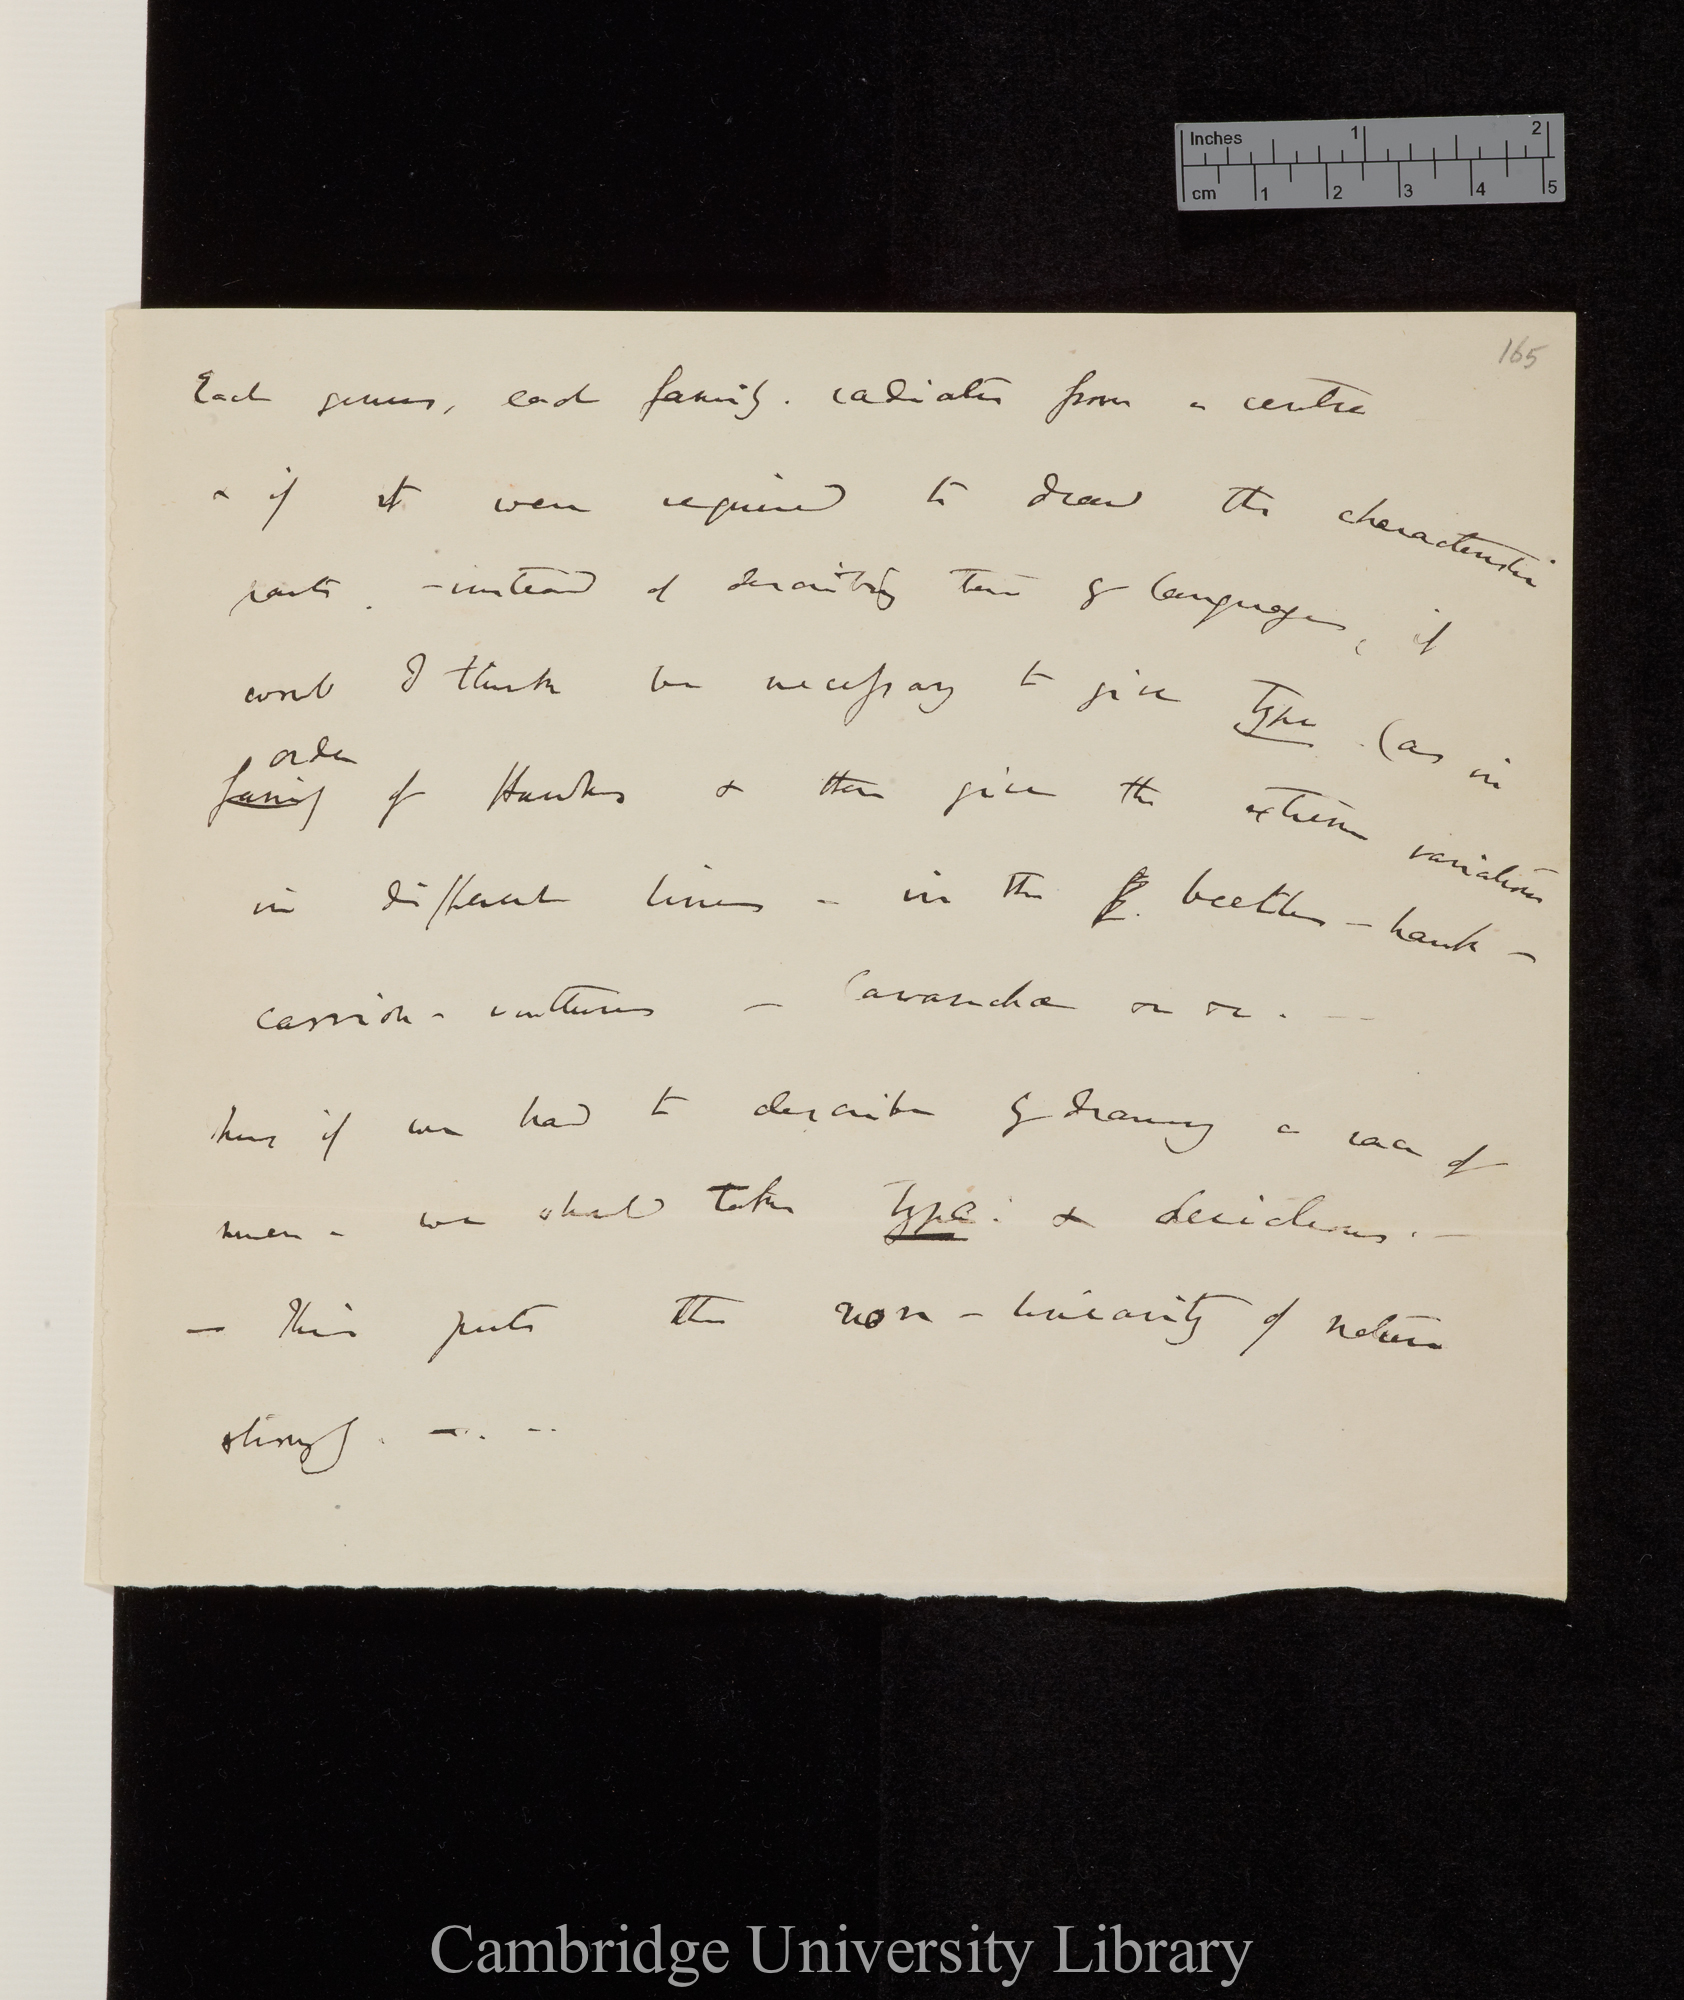 Inches 1 2
cm 1 2 3 4 5
165
Each genus, each family. radiates from a centre
& if it were required to draw the characteristic
parts. – instead of describing them by languages, it
would I think be necessary to give type. (as in
order
family of Hawks & then give the extreme variations
in different lines – in the beetles – hawk –
carrion – vultures – Caracara &c &c. –
thus if we had to describe by drawing a race of
men – we should take type: & deviations. –
– This puts the non-linearity of nature
strongly. –. –
Cambridge University Library